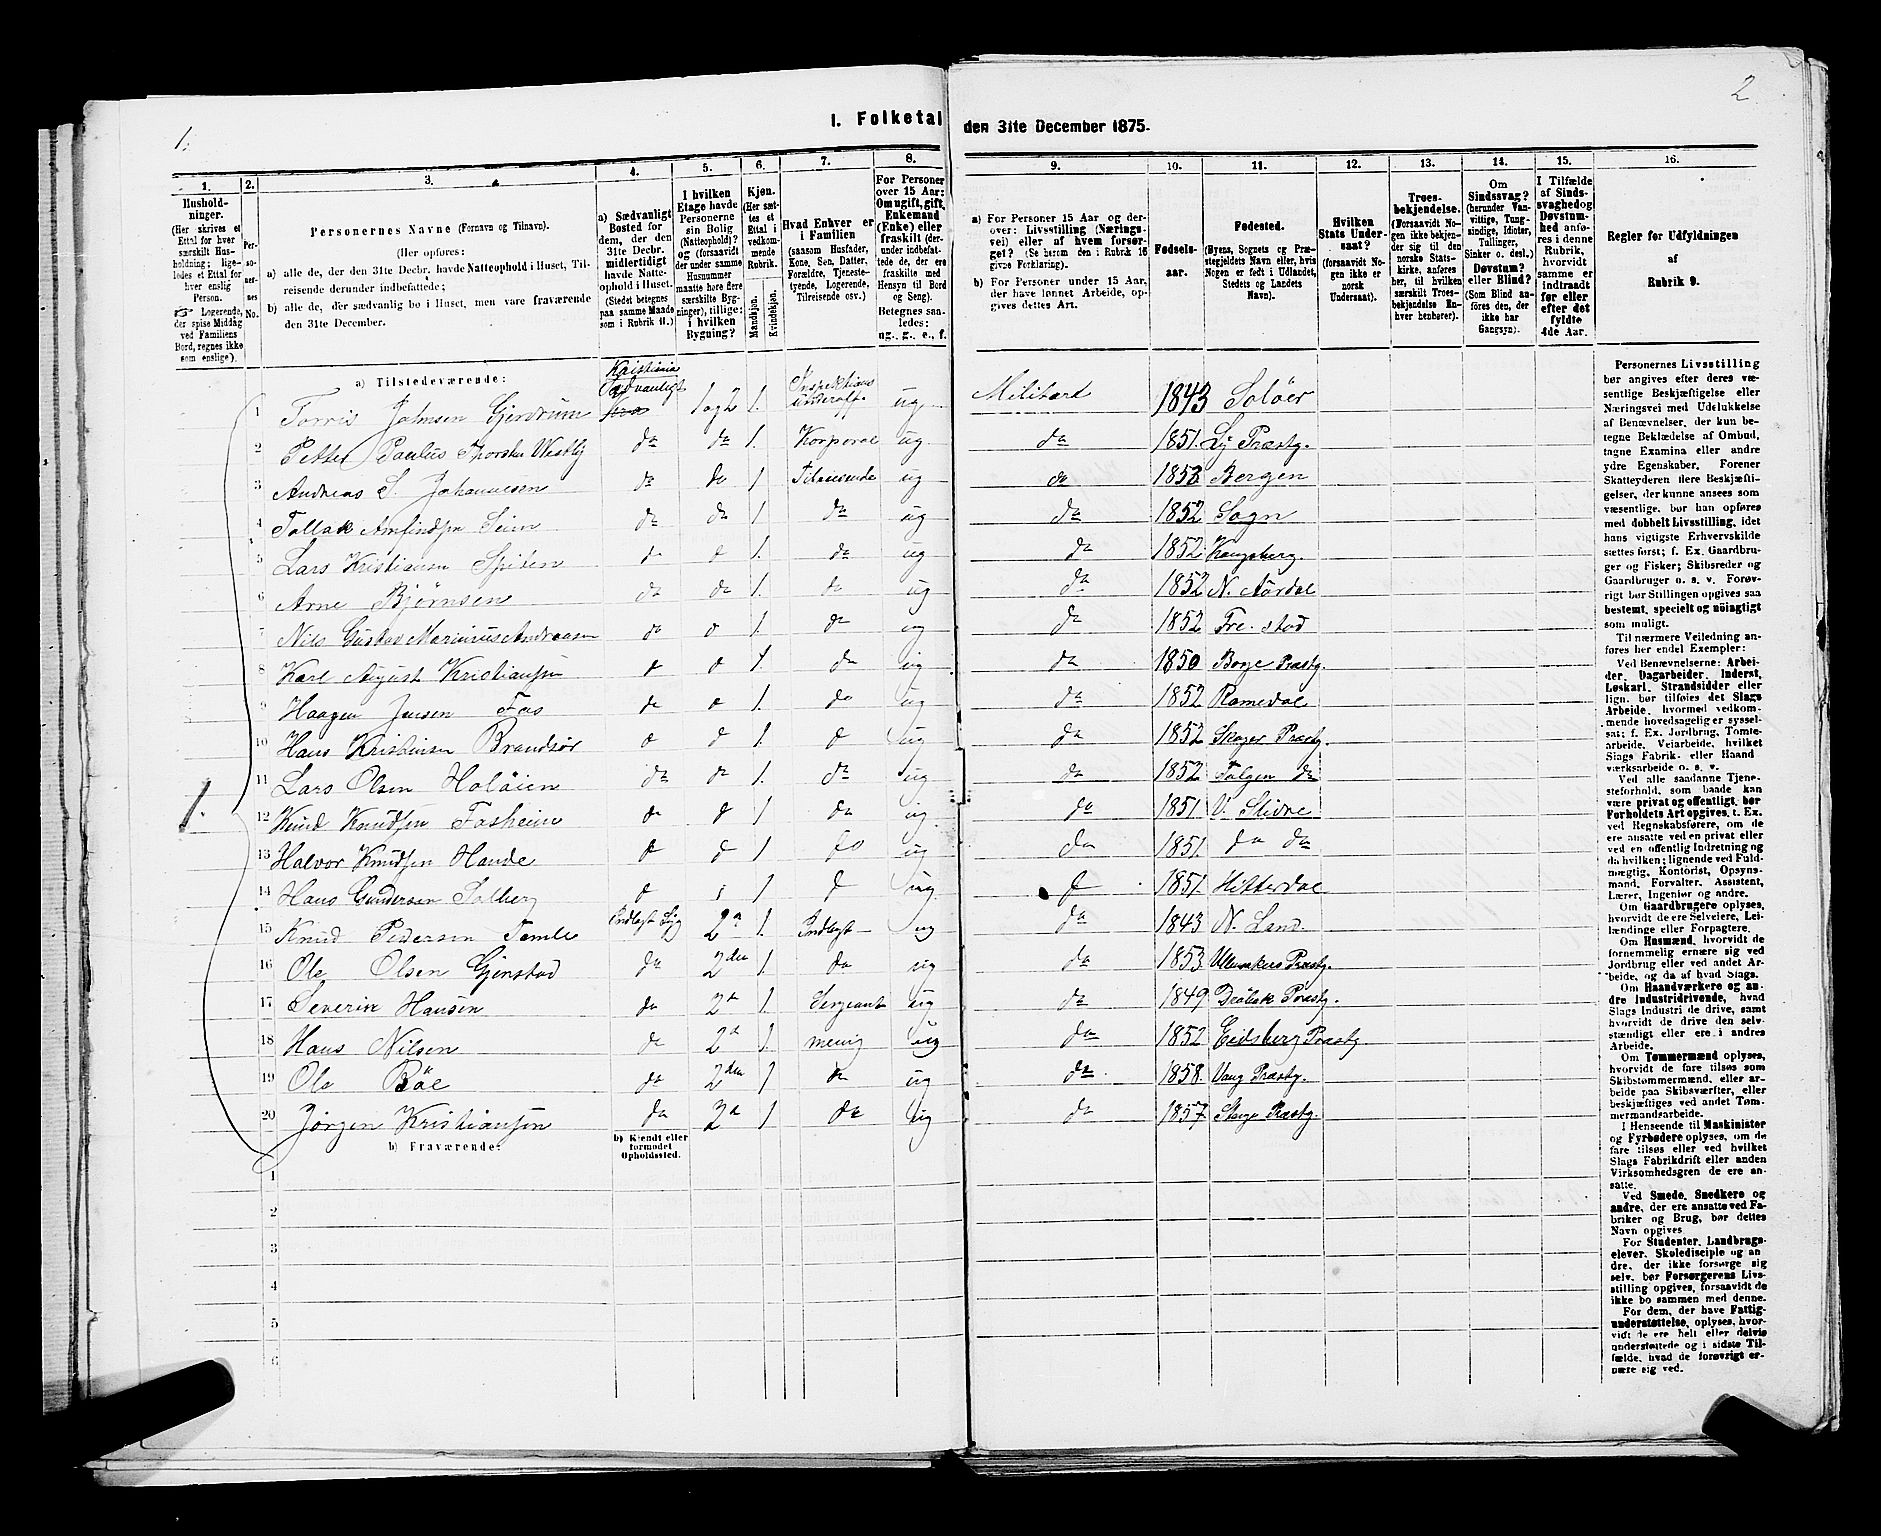 1.
2
I. Folketal den 31te December 1875.
1. 2. 3. 4. 5. 6. 7. 8. 9. 10. 11. 12. 13. 14. 15. 16.
Husholdninger.
(Her skrives et Ettal for hver særskilt Husholdning; ligeledes et Ettal for hver enslig Person.
Logerende, der spise Middag ved Familiens Bord, regnes ikke som enslige).
Personernes No.
Personernes Navne (Fornavn og Tilnavn).
(Her opføres:
a) alle de, der den 31te Decbr. havde Natteophold i Huset, Tilreisende derunder indbefattede;
b) alle de, der sædvanlig bo i Huset, men vare fraværende den 31te December.
a) Sædvanligt Bosted for dem, der den 31te Decbr. midlertidigt havde Natteophold i Huset. (Stedet betegnes paa samme Maade som i Rubrik 11.)
I hvilken Etage havde Personerne sin Bolig (Natteophold)? og (forsaavidt der under samme Husnummer maatte høre flere særskilte Bygninger), tillige: i hvilken Bygning?
Kjøn. (Her sættes et Ettal i vedkommende Rubrik.
Mandkjøn. Kvindekjøn.
Hvad Enhver er i Familien (saasom Husfader, Kone, Søn, Datter, Forældre, Tjenestetyende, Logerende, Tilreisende osv.)
For Personer over 15 Aar: Om ugift, gift, Enkemand (Enke) eller fraskilt (derunder indbefattede de, der ere fraskilte med Hensyn til Bord og Seng). Betegnes saaledes: ug., g., e., f.
a) For Personer 15 Aar og derover: Livsstilling (Næringsvei) eller af hvem forsørget? (Se herom den i Rubrik 16 givne Forklaring).
b) For Personer under 15 Aar, der have lønnet Arbeide, opgives dettes Art.
Fødselsaar.
Fødested. (Byens, Sognets og Præstegjeldets Navn eller, hvis Nogen er født i Udlandet, Stedets og Landets Navn).
Hvilken Stats Undersaat? (forsaavidt Nogen ikke er norsk Undersaat).
Troesbekjendelse. (Forsaavidt Nogen ikke bekjender sig til den norske Statskirke, anføres her, til hvilken særskilt Troesbekjendelse Enhver henhører).
Om Sindssvag? (herunder Vanvittige, Tungsindige, Idioter, Tullinger, Sinker o. desl.) Døvstum? eller Blind? (Som Blind anføres den, der ikke har Gangsyn).
I Tilfælde af Sindssvaghed og Døvstumhed anføres i denne Rubrik, hvorvidt samme er indtraadt før eller efter det fyldte 4de Aar.
Regler for Udfyldningen af Rubrik 9.
a) Tilstedeværende:
Kristiania
1 Torris Johnsen Gjerdrum Sædvanligt 1 og 2 1. Inspektions underoff. ug. Militærd 1843 Solöer
2 Petter Paulus Thorsten Westby do do 1. Korporal ug do 1851. Ly Præstg.
3 Andreas S. Johannesen do do 1 Tilreisende ug do 1853 Bergen
4 Tollak Seim do do 1 do ug do 1852 Sogn
5 Lars Kristiansen Spiten d d 1. do ug do 1852 Kongsberg.
6 Arne Björnsen do do 1. do ug do 1852 N. Aurdal
7 Nils Gustav Marinius Andreasen do d 1. do ug do 1852 Fre. stad
8 Karl August Kristiansen d d 1 do ug do 1850 Borge Præstg.
9 Haagen Jensen Fos do d 1. do ug do 1852 Romsdal
10 Hans Kristiansen Brandsör d d 1. d ug do 1852 Skoger Præstg.
11 Lars Olsen Holöien do do 1. do ug do 1852 Tolgen do
1. 12 Knud Knudsen Fosheim do d 1 do ug. do 1851. V. Slidre
13 Halvor Knudsen Hande d d 1 do ug do 1851. do do
14 Hans Gundersen Solberg d 1 d ug. d 1851. Hitterdal
15 Knud Pedersen Tomle Indlagt Syg 2d 1. Indlagt ug do 1843 N. Land.
16 Ole Olsen Gjenstad do 2den 1 do ug do 1853 Ullensakers Præstg.
17 Severin Hansen do 2d 1. Sergeant ug do 1849 Dröbak Præstg.
18 Hans Nilsen do 2d 1. menig ug do 1852 Eidsberg Præstg
19 Ole Böe do 2den 1 do ug do 1858. Vang Præstg.
20 Jörgen Kristiansen do 2d 1 do ug do 1857 Stange Præstg.
b) Fraværende:
b) Kjendt eller formodet Opholdssted.
1
2
3
4
5
6
Personernes Livsstilling
bør angives efter deres væ-
sentlige Beskjæftigelse eller
Næringsvei med Udelukkelse
af Benævnelser, der kun be-
tegne Beklædelse af Ombud,
tagne Examina eller andre
ydre Egenskaber. Forener
Skatteyderen flere Beskjæfti-
gelser, der kunne ansees som
væsentlige, bør han opføres
med dobbelt Livsstilling, idet
hans vigtigste Erhvervskilde
sættes først; f. Ex. Gaardbru-
ger og Fisker; Skibsreder og
Gaardbruger o. s. v. Forøv-
rigt bør Stillingen opgives saa
bestemt, specielt og nöiagtigt
som muligt.
Til nærmere Veiledning an-
føres her endel Exempler:
Ved Benævnelserne: Arbei-
der, Dagarbeider, Inderst,
Løskarl, Strandsidder eller
lign. bør tilføies det Slags
Arbeide, hvormed vedkom-
mende hovedsagelig er syssel-
sat; f. Ex. Jordbrug, Tomte-
arbeide, Veiarbeide, hvilket
Slags Fabrik- eller Haand
værksarbeide o. s. v.
Ved alle saadanne Tjene-
steforhold, som baade kan
være privat og offentligt, bør
Forholdets Art opgives, t. Ex.
ved Regnskabsførere, om de
ere ansatte ved en privat eller
ved en offentlig Indretning og
da hvilken; lignende ved Fuld-
mægtig, Kontorist, Opsyns-
mand, Forvalter, Assistent,
Lærer, Ingeniør og andre.
Om Gaardbrugere oplyses,
hvorvidt de ere Selveiere, Lei-
lændinge eller Forpagtere.
Om Husmænd, hvorvidt de
fornemmelig ernære sig ved
Jordbrug eller ved andet Ar-
beide, og da af hvad Slags.
Om Haandværkere og an-
dre Industridrivende, hvad
Slags Industri de drive, samt
hvorvidt de drive den selv-
stændigt eller ere i andres
Arbeide.
Om Tømmermænd oplyses,
hvorvidt de fare tilsøs som
Skibstømmermænd, eller ar-
beide paa Skibsværfter, eller
beskjæftiges ved andet Tøm-
mermandsarbeide.
I Henseende til Maskinister
og Fyrbødere oplyses, om de
fare tilsøs eller ved hvilket
Slags Fabrikdrift eller anden
Virksomhedsgren de ere an-
satte.
Ved Smede, Snedkere og
andre, der ere ansatte ved Fa-
briker og Brug, bør dettes
Navn opgives
For Studenter, Landbrugs-
elever, Skoledisciple og an
dre, der ikke forsørge sig
selv, bør Forsørgerens Livs-
stilling opgives, forsaavidt de
ikke bo sammen med denne.
For dem, der have Fattig-
understøttelse, oplyses, hvor-
vidt de ere helt eller delvis
understøttede og i sidste Til-
fælde, hvad de forøvrigt er-
nære sig ved.